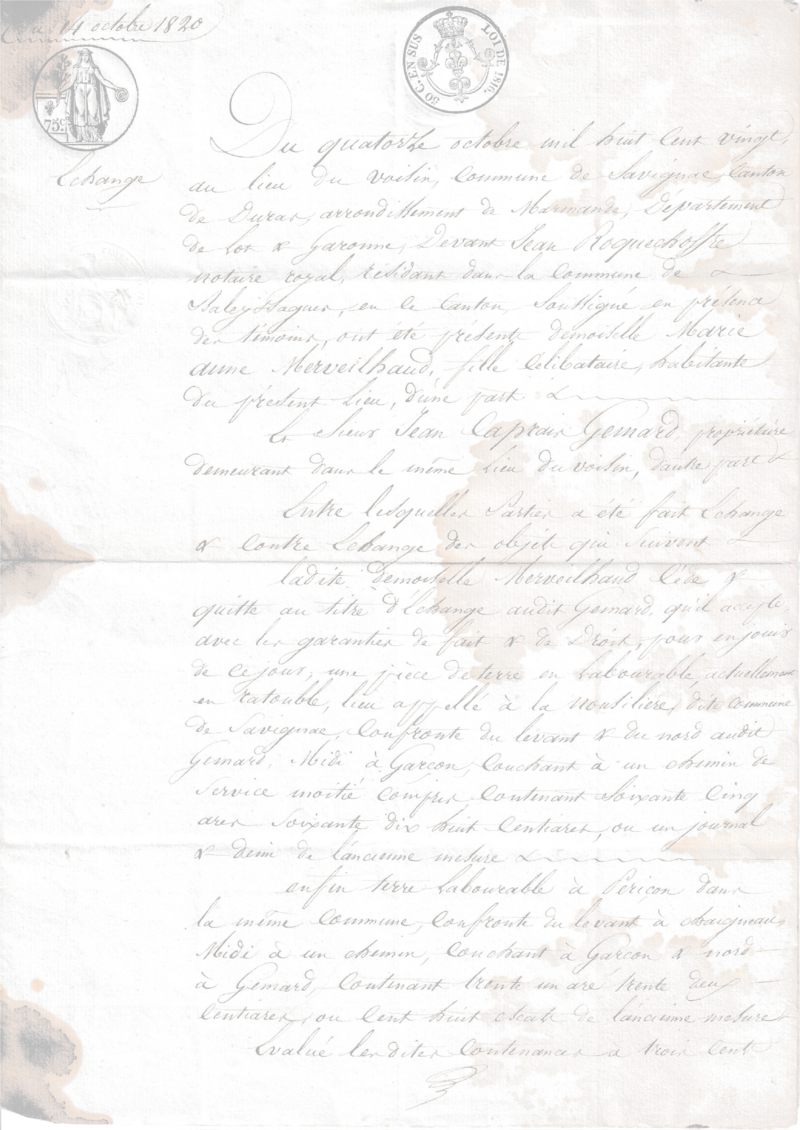 14 octobre 1820
75c.
50 C. EN SUS LOI DE 1816.
Echange
Du quatorze octobre mil huit cent vingt,
au lieu du voisin, commune de Savignac, Canton
de Duras, arrondissement de Marmande, Département
de Lot & Garonne, Devant Jean Roquechoffre
notaire royal, résidant dans la Commune de
Baleyssagues, en ce Canton, soussigné en présence
des témoins, ont été présents demoiselle Marie
anne Merveilhaud, fille Célibataire, habitante
du présent Lieu, d'une part &
Et Sieur Jean Caprais Gemard, propriétaire
demeurant dans le même Lieu du voisin, dautre part &
Entre lesquelles Parties a été fait Echange
& contre Echange des objets qui suivent
ladite Demoiselle Merveilhaud Cède &
quitte au titre d'Echange audit Gemard, qu'il accepte,
avec les garanties de fait & de Droit, pour en jouir
de ce jour, une pièce de terre en Labourable, actuellement
en ratouble, lieu appellé à la nousiliere, dite commune
de Savignac, Confronte du levant & du nord audit
Gemard, Midi à Garçon, Couchant à un chemin de
Service moitié compris Contenant Soixante Cinq
ares Soixante dix huit Centiares, ou un journal
& demi de l'ancienne mesure &
enfin terre Labourable à Periçon dans
la même commune, Confronte du levant à chaigneau,
Midi à un chemin, Couchant à Garçon & nord
à Gemard, Contenant trente un are trente deux
Centiares, ou Cent huit escats de l'ancienne mesure
Evalué les dites Contenances à trois Cent